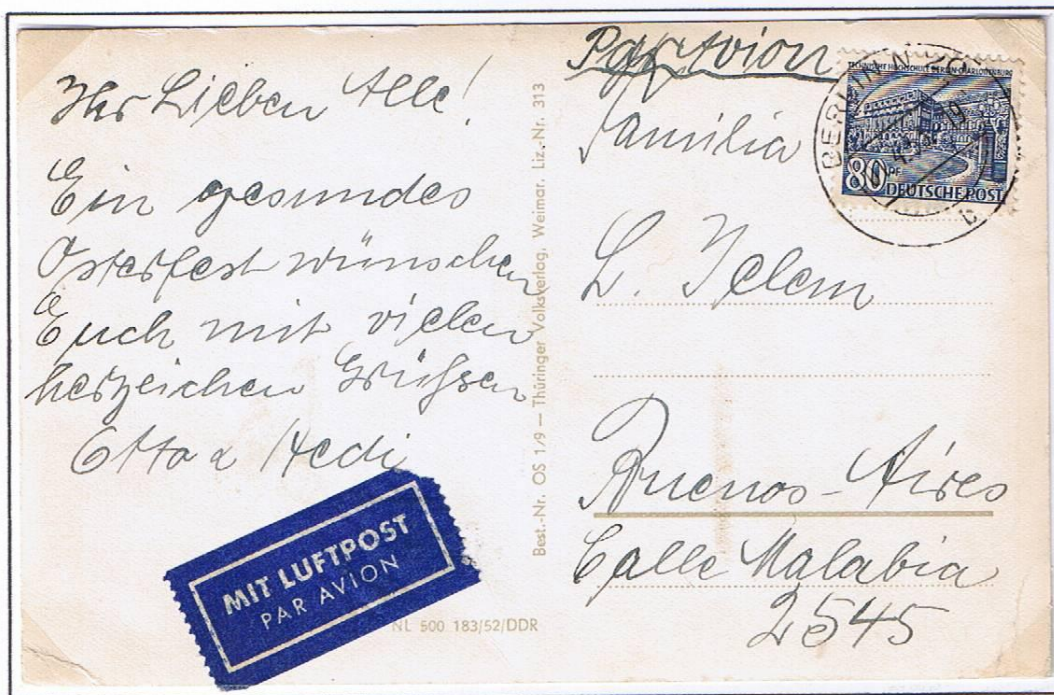 Ihr Lieben Alle!
Ein gesundes
Osterfest wünschen
Euch mit vielen
herzlichen Grüssen
Otto & Hedi
MIT LUFTPOST
PAR AVION
NL 500 183/52/DDR
Best.-Nr. OS 1/9 — Thüringer Volksverlag, Weimar, Liz.-Nr. 313
Par Avion
Familia
L. Jelem
Buenos-Aires
Calle Malabia
2545
TECHNISCHE HOCHSCHULE BERLIN-CHARLOTTENBURG
80 PF
DEUTSCHE POST
BERLIN
b